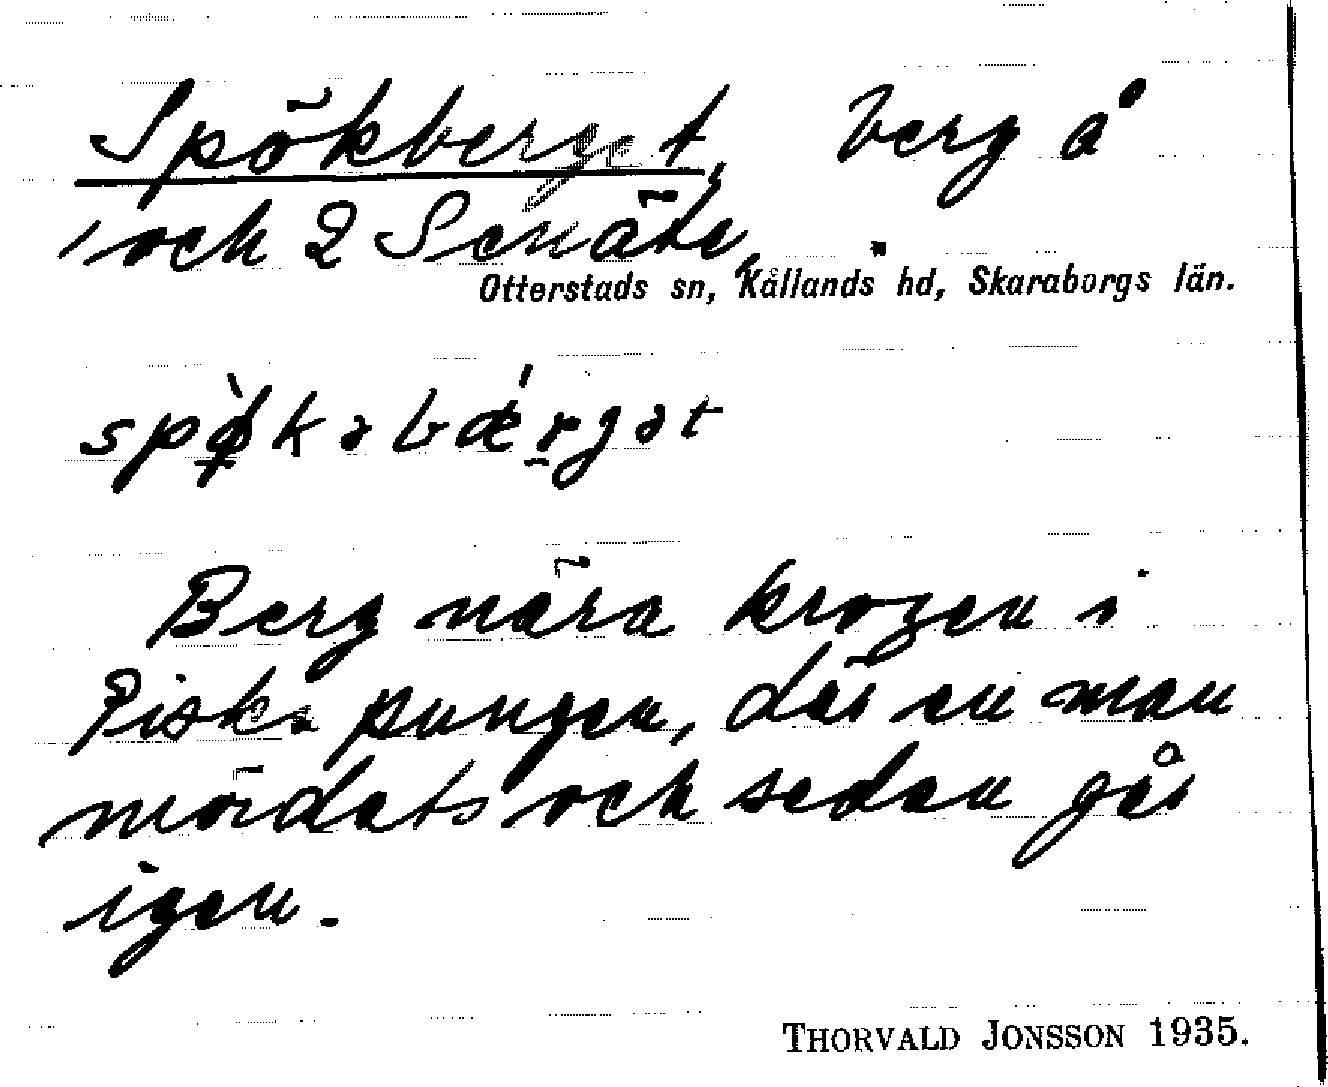 Spökberget, berg å
1 och 2 Senäte.
Otterstads sn, Kållands hd, Skaraborgs län.
spø̀kəbǽrgət
Berg nära krogen i
Piskapungen, där en man
mördats och sedan går
igen.
THORVALD JONSSON 1935.